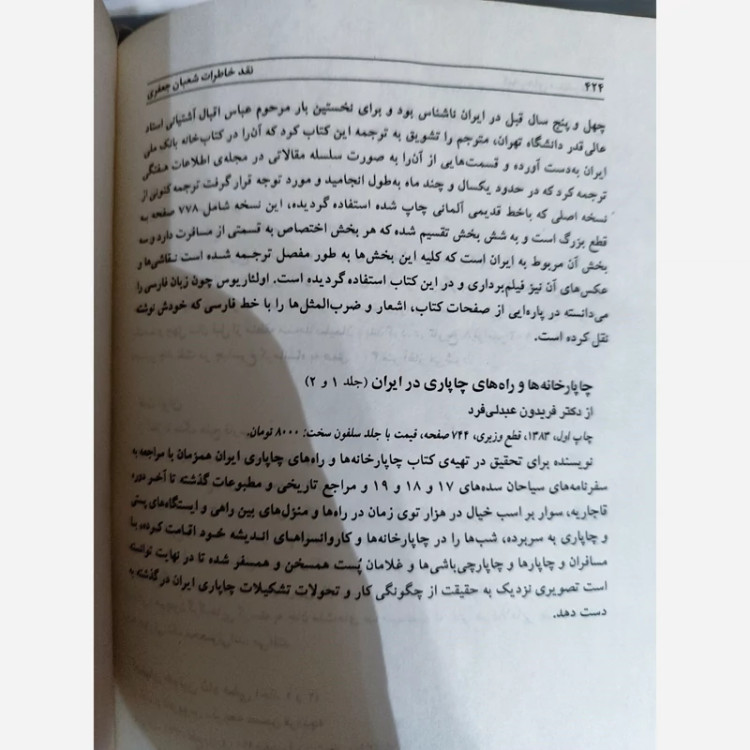 ۴۲۴
نقد خاطرات شعبان جعفری
چهل و پنج سال قبل در ایران ناشناس بود و برای نخستین بار مرحوم عباس اقبال آشتیانی استاد
عالی‌قدر دانشگاه تهران، مترجم را تشویق به ترجمه این کتاب کرد که آن‌را در کتاب‌خانه بانک ملی
ایران به‌دست آورده و قسمت‌هایی از آن‌را به صورت سلسله مقالاتی در مجله‌ی اطلاعات هفتگی
ترجمه کرد که در حدود یکسال و چند ماه به‌طول انجامید و مورد توجه قرار گرفت ترجمه کنونی از
نسخه اصلی که باخط قدیمی آلمانی چاپ شده استفاده گردیده، این نسخه شامل ۷۷۸ صفحه به
قطع بزرگ است و به شش بخش تقسیم شده که هر بخش اختصاص به قسمتی از مسافرت دارد و سه
بخش آن مربوط به ایران است که کلیه این بخش‌ها به طور مفصل ترجمه شده است نقاشی‌ها و
عکس‌های آن نیز فیلم‌برداری و در این کتاب استفاده گردیده است. اولئاریوس چون زبان فارسی را
می‌دانسته در پاره‌ایی از صفحات کتاب، اشعار و ضرب‌المثل‌ها را با خط فارسی که خودش نوشته
نقل کرده است.
چاپارخانه‌ها و راه‌های چاپاری در ایران (جلد ۱ و ۲)
از دکتر فریدون عبدلی‌فرد
چاپ اول، ۱۳۸۳، قطع وزیری، ۷۴۴ صفحه، قیمت با جلد سلفون سخت: ۸۰۰۰ تومان.
نویسنده برای تحقیق در تهیه‌ی کتاب چاپارخانه‌ها و راه‌های چاپاری ایران همزمان با مراجعه به
سفرنامه‌های سیاحان سده‌های ۱۷ و ۱۸ و ۱۹ و مراجع تاریخی و مطبوعات گذشته تا آخر دوره
قاجاریه، سوار بر اسب خیال در هزار توی زمان در راه‌ها و منزل‌های بین راهی و ایستگاه‌های پستی
و چاپاری به سربرده، شب‌ها را در چاپارخانه‌ها و کاروانسراهای اندیشه خود اقامت کرده، با
مسافران و چاپارها و چاپارچی‌باشی‌ها و غلامان پُست همسخن و همسفر شده تا در نهایت توانسته
است تصویری نزدیک به حقیقت از چگونگی کار و تحولات تشکیلات چاپاری ایران در گذشته به
دست دهد.